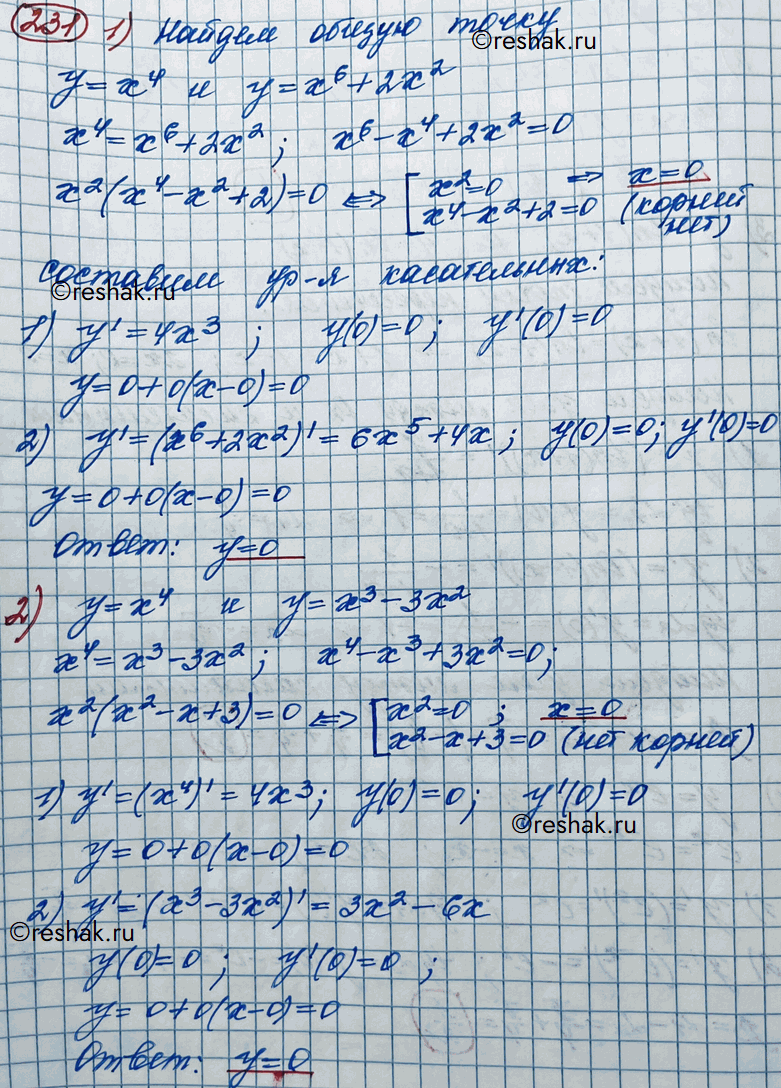 231 1) Найдем общую точку
©reshak.ru
y=x⁴ и y=x⁶+2x²
x⁴=x⁶+2x²; x⁶-x⁴+2x²=0
x²(x⁴-x²+2)=0 ⟺ [x²=0 ⇒ x=0
x⁴-x²+2=0 (корней
нет)
Составим ур-я касательных:
©reshak.ru
1) y'=4x³; y(0)=0; y'(0)=0
y=0+0(x-0)=0
2) y'=(x⁶+2x²)'=6x⁵+4x; y(0)=0; y'(0)=0
y=0+0(x-0)=0
Ответ: y=0
2) y=x⁴ и y=x³-3x²
x⁴=x³-3x²; x⁴-x³+3x²=0;
x²(x²-x+3)=0 ⟺ [x²=0; x=0
x²-x+3=0 (нет корней)
1) y'=(x⁴)'=4x³; y(0)=0; y'(0)=0
©reshak.ru
y=0+0(x-0)=0
2) y'=(x³-3x²)'=3x²-6x
©reshak.ru
y(0)=0; y'(0)=0;
y=0+0(x-0)=0
Ответ: y=0